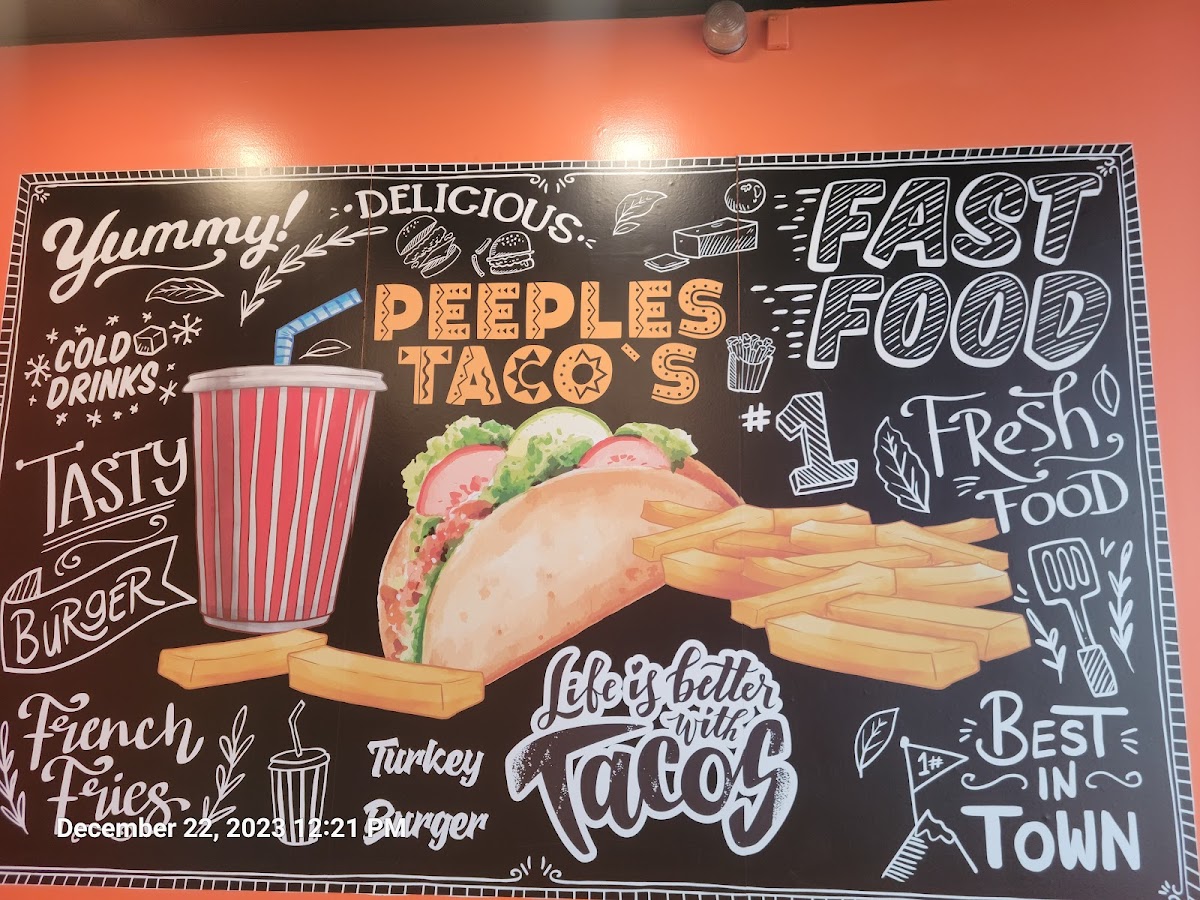 Yummy!
DELICIOUS
FAST
FOOD
PEEPLES
TACO`S
COLD
DRINKS
#1
FRESH
FOOD
TASTY
BURGER
French
Fries
Turkey
Burger
Life is better
with
Tacos
1#
BEST
IN
TOWN
December 22, 2023 12:21 PM